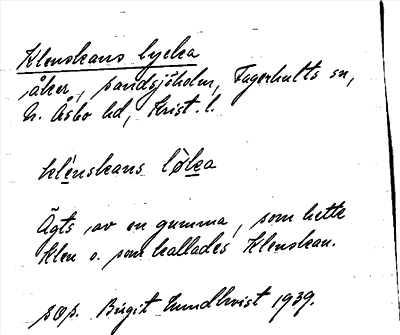 Klenskans lycka
åker, Sandsjöholm, Fagerhults sn,
N. Åsbo hd, Krist. l.
klénskans lỳka
Ägts av en gumma, som hette
Klen o. som kallades Klenskan.
Birgit Lundkvist 1939.